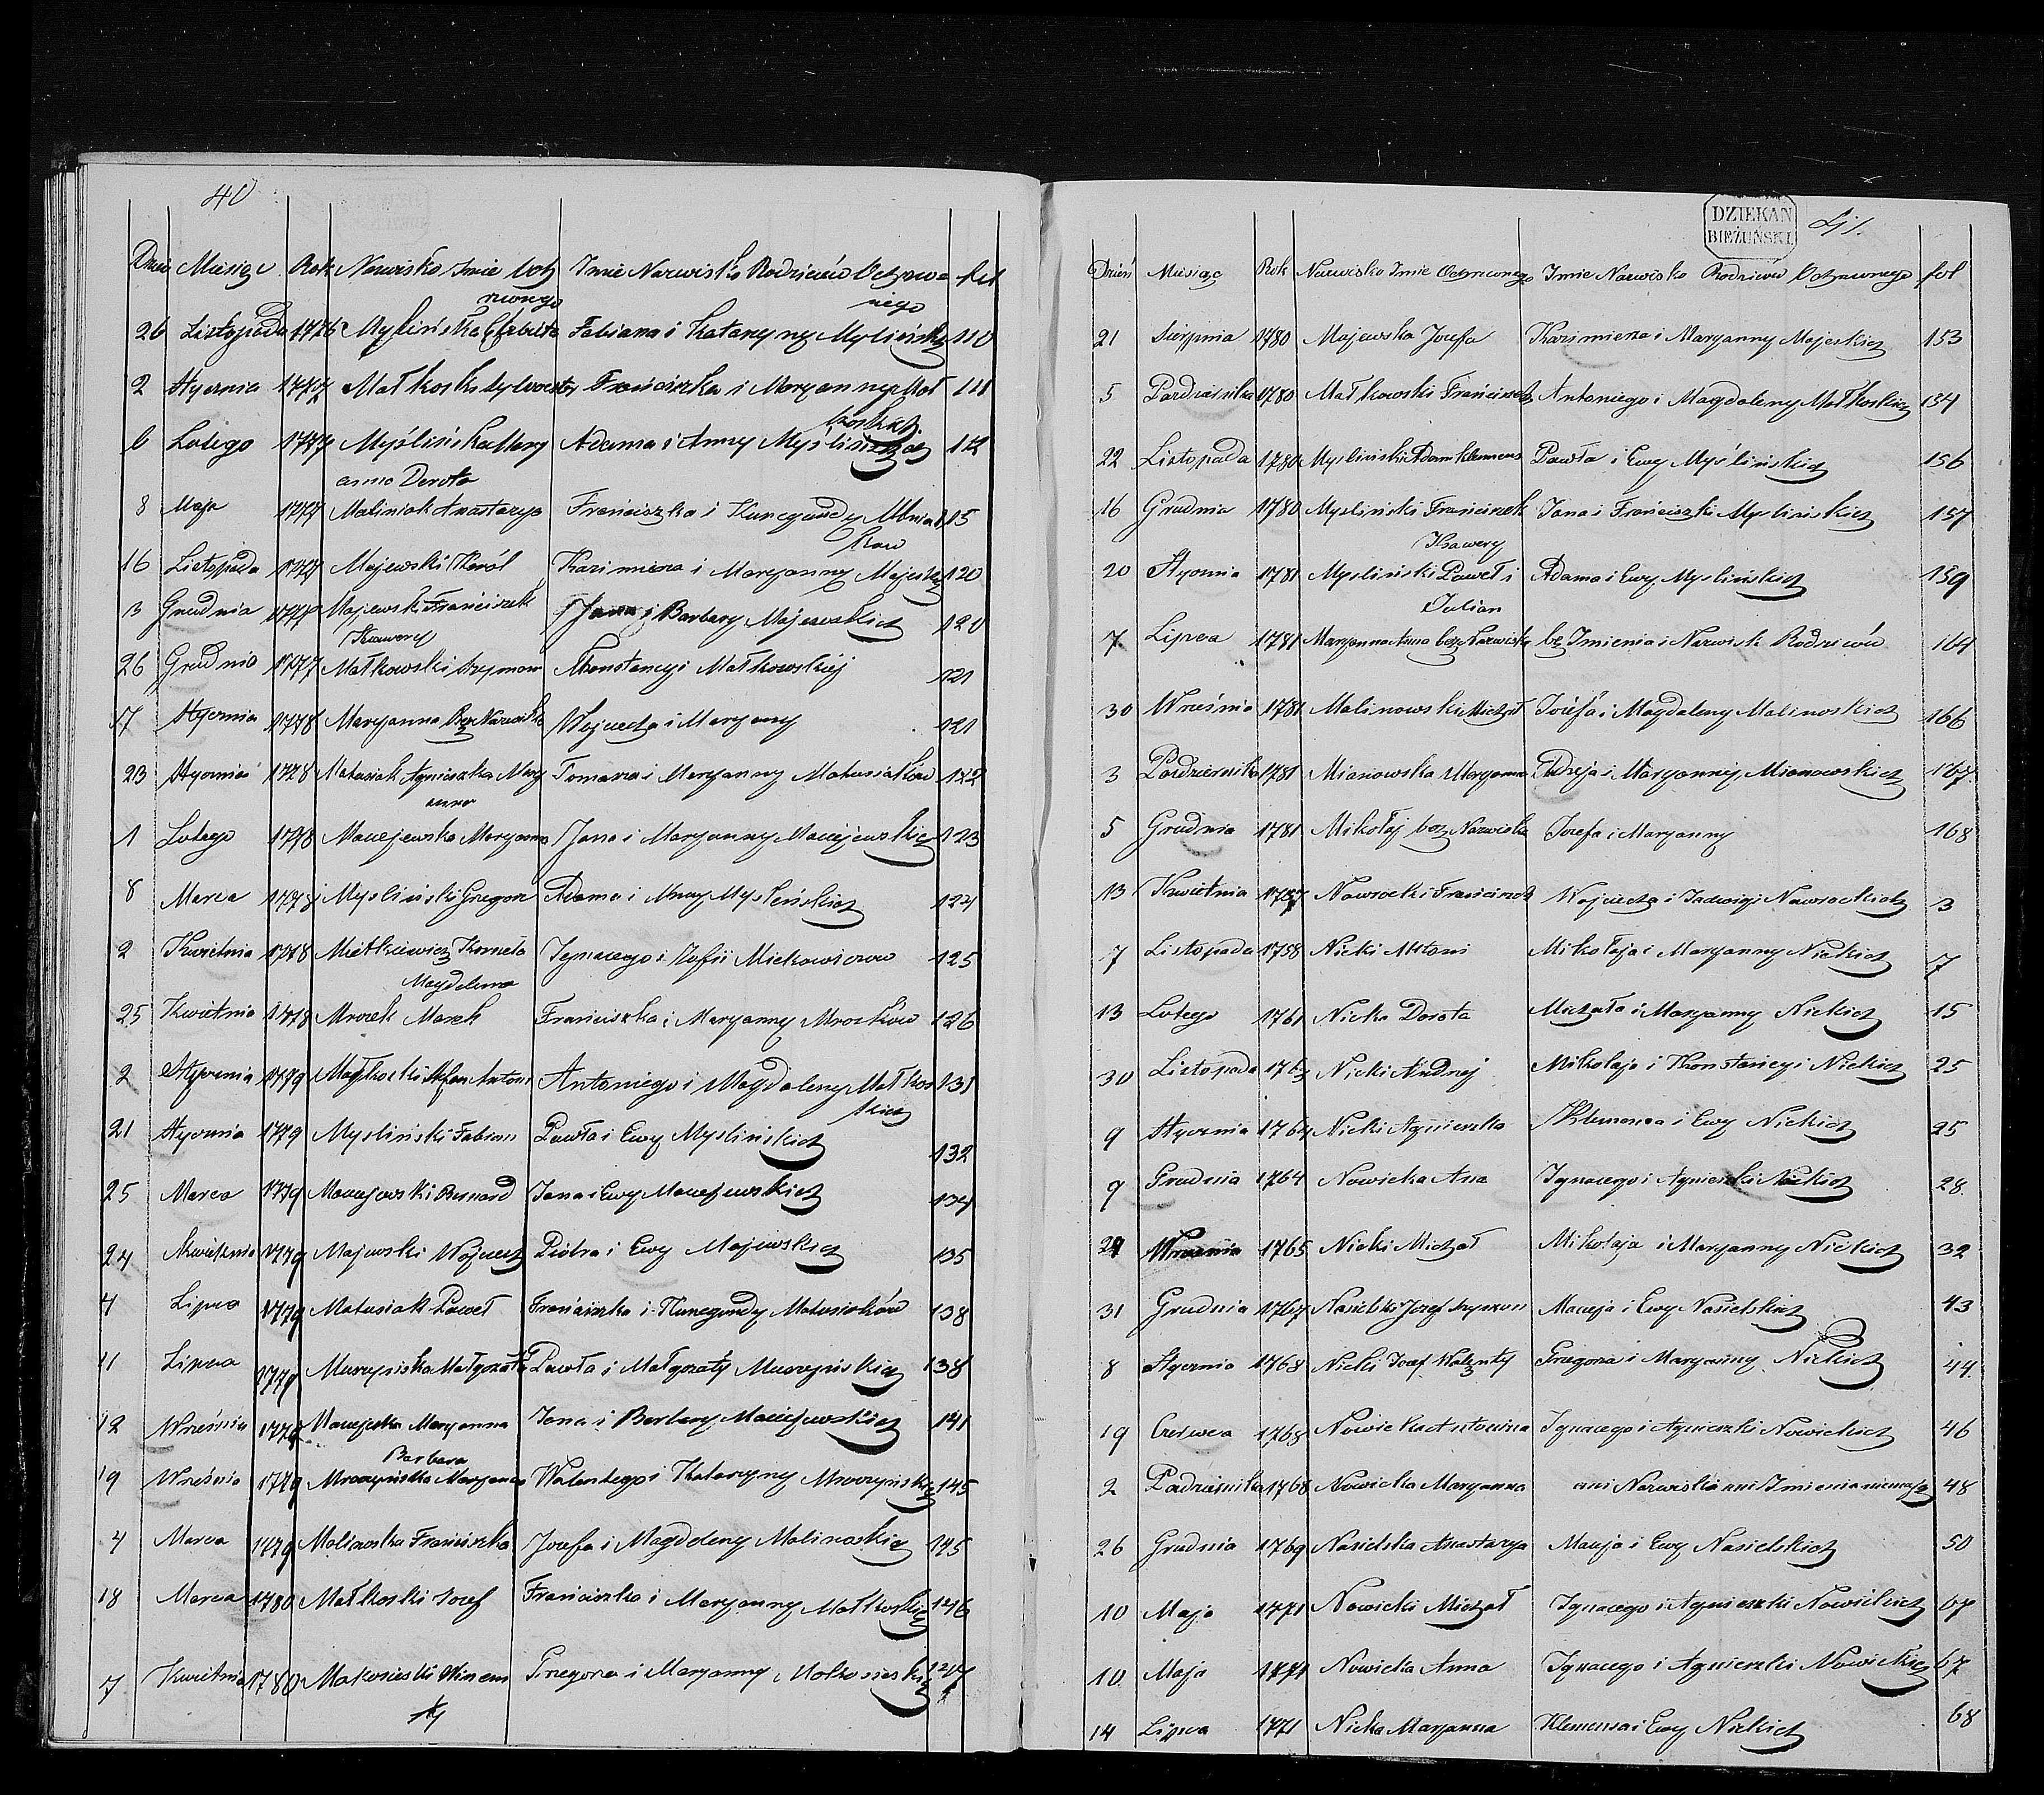 40
Dzień Miesiąc Rok Nazwisko Imie Ochrzconego Imie Nazwisko Rodziców Ochrzconego fol
26 Listopada 1776 Myślińska Elżbieta Fabiana i Katarzyny Myślińskich 110
2 Stycznia 1777 Małkoski Sylwester Franciszka i Maryanny Małkoskich 111
6 Lutego 1777 Myślińska Maryanna Dorota Adama i Anny Myślińskich 112
8 Maja 1777 Maliniak Anastazya Franciszka i Kunegundy 115
16 Listopada 1777 Majewski Karól Kazimierza i Maryanny Majeskich 120
3 Grudnia 1777 Majewski Franciszek Xawery Jana i Barbary Majewskich 120
26 Grudnia 1777 Małkowski Szymon Konstancyi Małkowskiéj 121
17 Stycznia 1778 Maryanna Bez Nazwiska Wojciecha i Maryany 121
23 Stycznia 1778 Matusiak Agnieszka Maryanna Tomasza i Maryanny Matusiaków 122
1 Lutego 1778 Maciejewska Maryanna Jana i Maryanny Maciejewskich 123
8 Marca 1778 Mysliński Grzegorz Adama i Anny Myslińskich 124
2 Kwietnia 1778 Mietkiewicz Magdalena Ignacego i Zofii Miekowiczow 125
25 Kwietnia 1778 Mrozek Marek Franciszka i Maryanny Mrozków 126
2 Stycznia 1779 Małkoski Antoni Antoniego i Magdaleny Małkoskich 131
21 Stycznia 1779 Mysliński Fabian Pawła i Ewy Myslińskich 132
25 Marca 1779 Maciejowski Bernard Jana i Ewy Maciejewskich 134
24 Kwietnia 1779 Majewski Wojciech Piotra i Ewy Majewskich 135
4 Lipca 1779 Matusiak Paweł Franciszka i Kunegundy Matusiaków 138
11 Lipca 1779 Murzyńska Małgorzata Pawła i Małgorzaty Murzyńskich 138
12 Września 1779 Maciejewska Maryanna Barbara Jana i Barbary Maciejewskich 141
19 Września 1779 Mroczyńska Maryanna Walentego i Katarzyny Mroczyńskich 145
4 Marca 1779 Malinoska Franciszka Jozefa i Magdaleny Malinoskich 145
18 Marca 1780 Małkoski Jozef Franciszka i Maryanny Małkoskich 146
7 Kwietnia 1780 Makosieski Wincenty Grzegorza i Maryanny Makosieskich 147
DZIEKAN
BIEŻUŃSKI
41.
Dzień Miesiąc Rok Nazwisko Imie Ochrzconego Imie Nazwisko Rodziców Ochrzconego fol
21 Sierpnia 1780 Majewska Jozefa Kazimierza i Maryanny Majeskich 153
5 Pazdziernika 1780 Małkowski Franciszek Antoniego i Magdaleny Małkoskich 154
22 Listopada 1780 Mysliński Adam Klemens Pawła i Ewy Myślińskich 156
16 Grudnia 1780 Mysliński Franciszek Xawery Jana i Franciszki Myslińskich 157
20 Stycznia 1781 Mysliński Paweł i Julian Adama i Ewy Myslińskich 159
7 Lipca 1781 Maryanna Anna bez Nazwiska bez Imienia i Nazwisk Rodziców 164
30 Września 1781 Malinowski Michał Józefa i Magdaleny Malinoskich 166
3 Pazdziernika 1781 Mianowska Maryanna Andrzeja i Maryanny Mianowskich 167
5 Grudnia 1781 Mikołaj bez Nazwiska Jozefa i Maryanny 168
13 Kwietnia 1757 Nawrocki Franciszek Wojciecha i Jadwigi Nawrockich 3
7 Listopada 1758 Nicki Antoni Mikołaja i Maryanny Nickich 7
13 Lutego 1761 Nicka Dorota Michała i Maryanny Nickich 15
30 Listopada 1763 Nicki Andrzej Mikołaja i Konstancyi Nickich 25
9 Stycznia 1764 Nicki Agnieszka Klemensa i Ewy Nickich 25
9 Grudnia 1764 Nowicka Ana Ignacego i Agnieszki Nickich 28
29 Wrzesnia 1765 Nicki Michał Mikołaja i Maryanny Nickich 32
31 Grudnia 1767 Nasielski Jozef Szymon Macieja i Ewy Nasielskich 43
8 Stycznia 1768 Nicki Jozef Walenty Grzegorza i Maryanny Nickich 44
19 Czerwca 1768 Nowicka Antonina Ignacego i Agnieszki Nowickich 46
2 Pazdziernika 1768 Nowicka Maryanna ani Nazwiska ani Imienia niemasz 48
26 Grudnia 1769 Nasielska Anastazya Macieja i Ewy Nasielskich 50
10 Maja 1771 Nowicki Michał Ignacego i Agnieszki Nowickich 67
10 Maja 1771 Nowicka Anna Ignacego i Agnieszki Nowickich 67
14 Lipca 1771 Nicka Maryanna Klemensa i Ewy Nickich 68